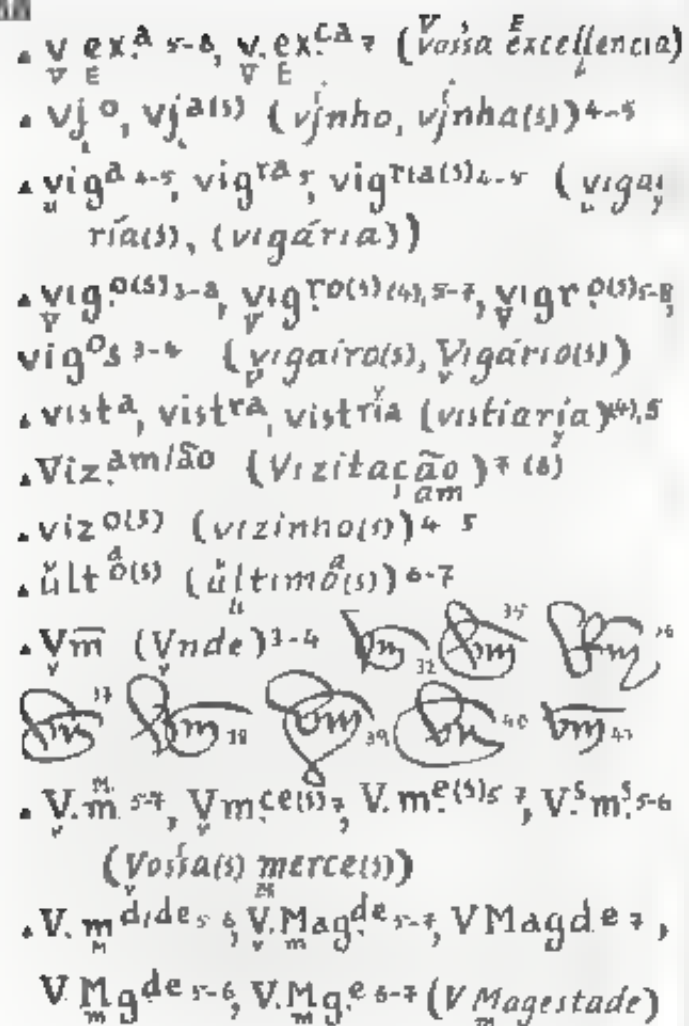 ▴ v ex.ª 5-8, v. ex.ca 7 (Vossa Excellencia)
▴ vj o, vj a(s) (vjnho, vjnha(s)) 4-5
▴ vigª 4-5, vig ra 5, vig ria(s) 4-5 (vigai
ría(s), (vigária))
▴ vig.o(s) 3-8, vig ro(s) (4), 5-7, vigr.o(s) 5-8,
vig os 3-4 (vigairo(s), Vigário(s))
▴ vist a, vist ra, vist ria (vistiaria) (4), 5
▴ Viz.am/ão (Vizitação) 7 (8)
am
▴ viz o(s) (vizinho(s)) 4 5
▴ últ o(s) (último(s)) 6-7
▴ Vm̅ (Vnde) 3-4 Vm 32 Vm 35 Vm
Vm 37 Vm 38 Vm 39 Vm 40 Vm 41
▴ V.m 5-7, Vm ce(s) 7, V.m e(s) 5 7, V.s m.s 5-6
(Vossa(s) merce(s))
▴ V. m d/de 5 6, V.Mag de 5-7, VMagde 7,
V Mg de 5-6, V.Mg.e 6-7 (V Magestade)